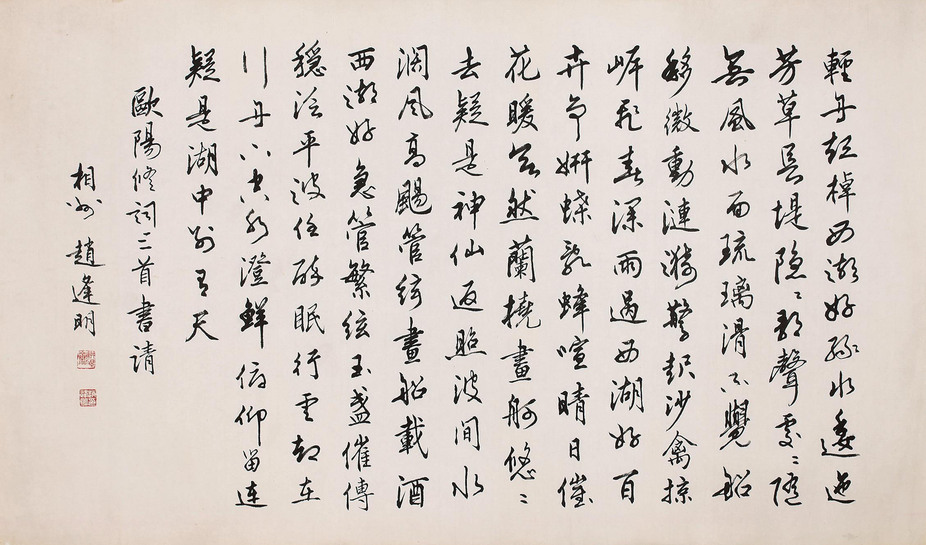 輕舟短棹西湖好綠水逶迤
芳草長堤隱々歌聲處々隨
無風水面琉璃滑不覺船
移微動漣漪驚起沙禽掠
岸飛春深雨過西湖好百
卉爭妍蝶亂蜂喧晴日催
花暖欲然蘭橈畫舸悠々
去疑是神仙返照波間水
闊風高颺管絃畫船載酒
西湖好急管繁絃玉盞催傳
穩泛平波任醉眠行雲却在
行舟下空水澄鮮俯仰留連
疑是湖中別有天
歐陽修詞三首書請
相州趙逢明